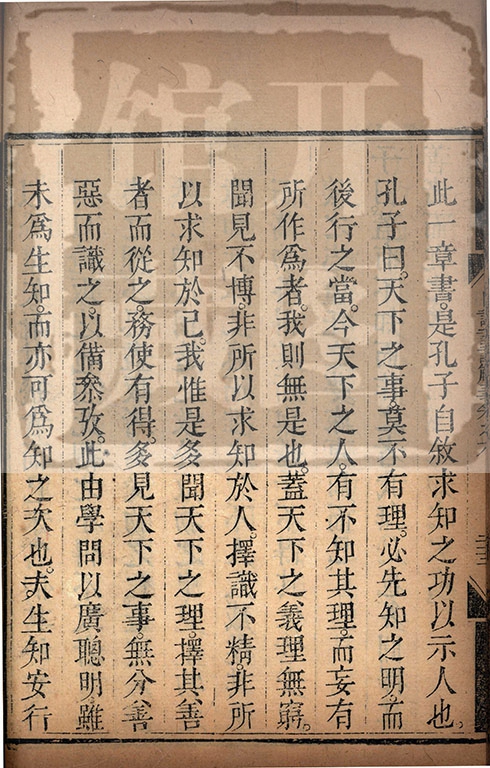 此一章書。是孔子自敘求知之功以示人也。
孔子曰。天下之事。莫不有理。必先知之明。而
後行之當。今天下之人。有不知其理。而妄有
所作爲者。我則無是也。蓋天下之義理無窮。
聞見不博。非所以求知於人。擇識不精。非所
以求知於己。我惟是多聞天下之理。擇其善
者而從之。務使有得。多見天下之事。無分善
惡而識之。以備叅攷。此由學問以廣聰明。雖
未爲生知。而亦可爲知之次也。夫生知安行